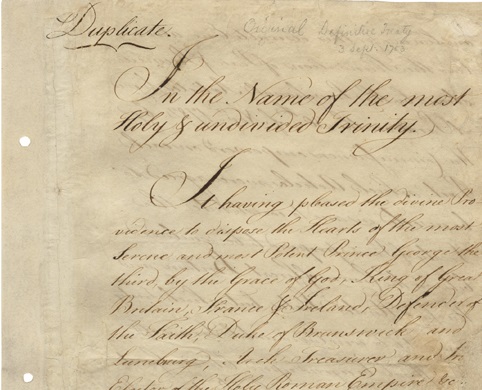 Duplicate.
Original Definitive treaty
3 Sept. 1783
In the Name of the most
Holy & undivided Trinity.
It having pleased the divine Pro
vidence to dispose the Hearts of the most
Serene and most Potent Prince George the
third, by the Grace of God, King of Great
Britain, France & Ireland, Defender of
the Faith, Duke of Brunswick and
Lunebourg, Arch Treasurer and
Elector of the Holy Roman Empire &c.